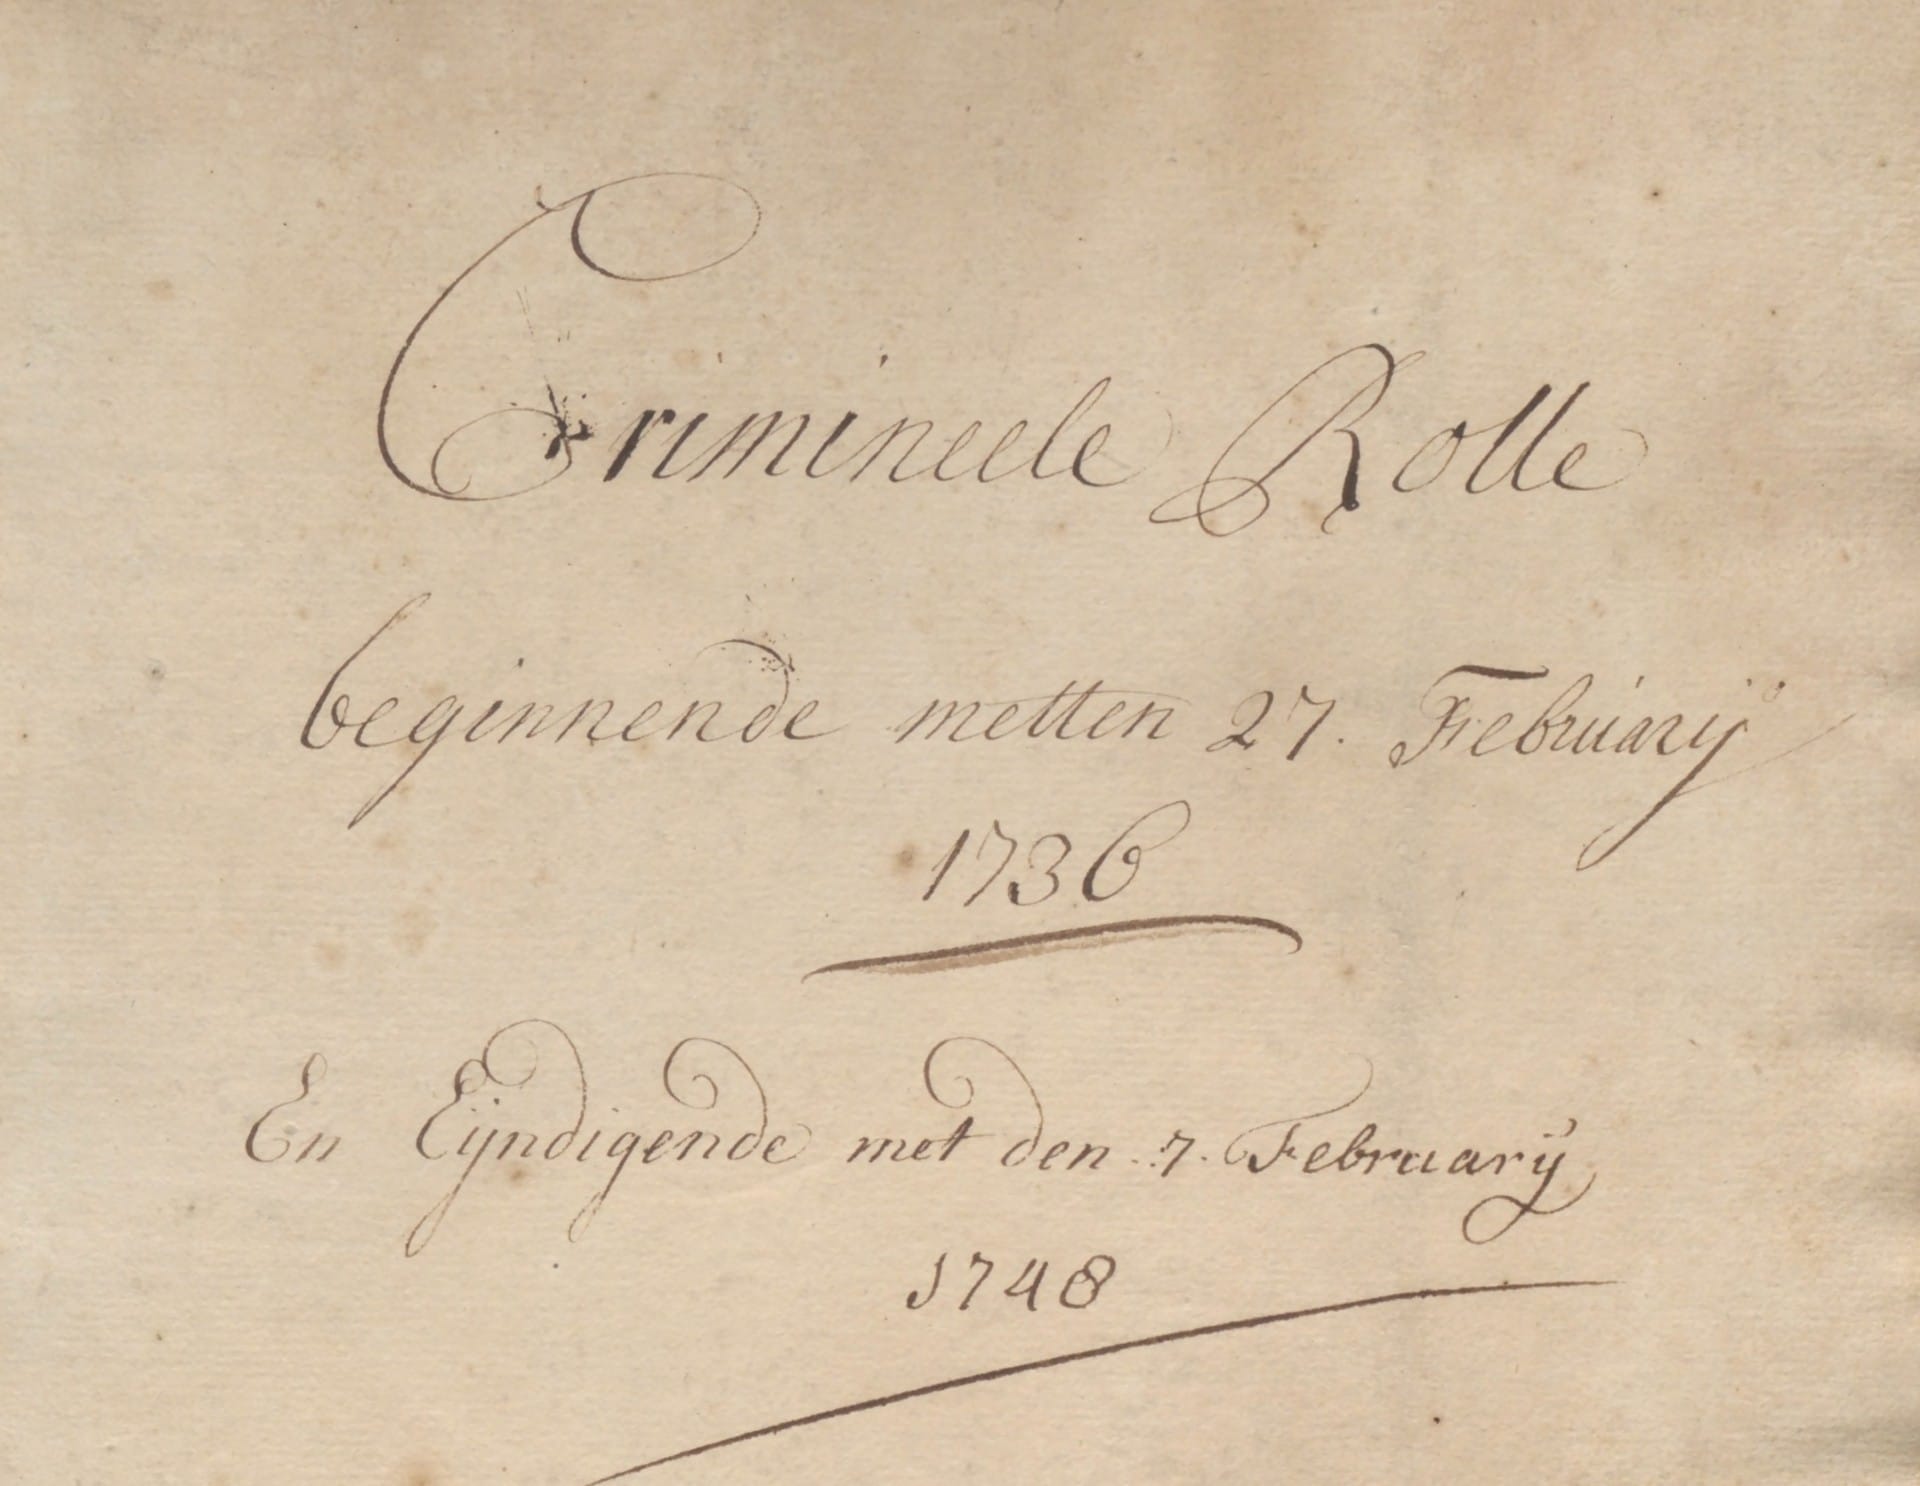 Crimineele Rolle
beginnende metten 27. Februarij
1736
En Eijndigende met den .7. Februarij
1748